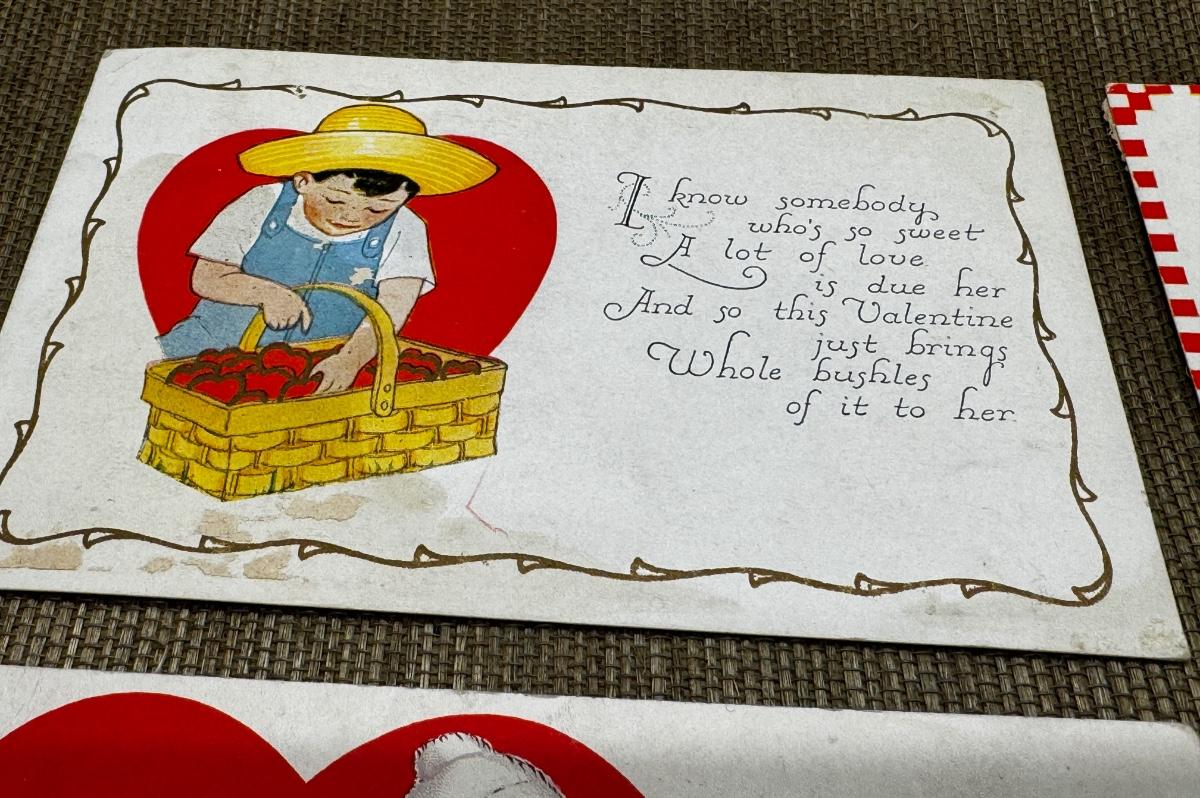 I know somebody
who's so sweet
A lot of love
is due her
And so this Valentine
just brings
Whole bushles
of it to her